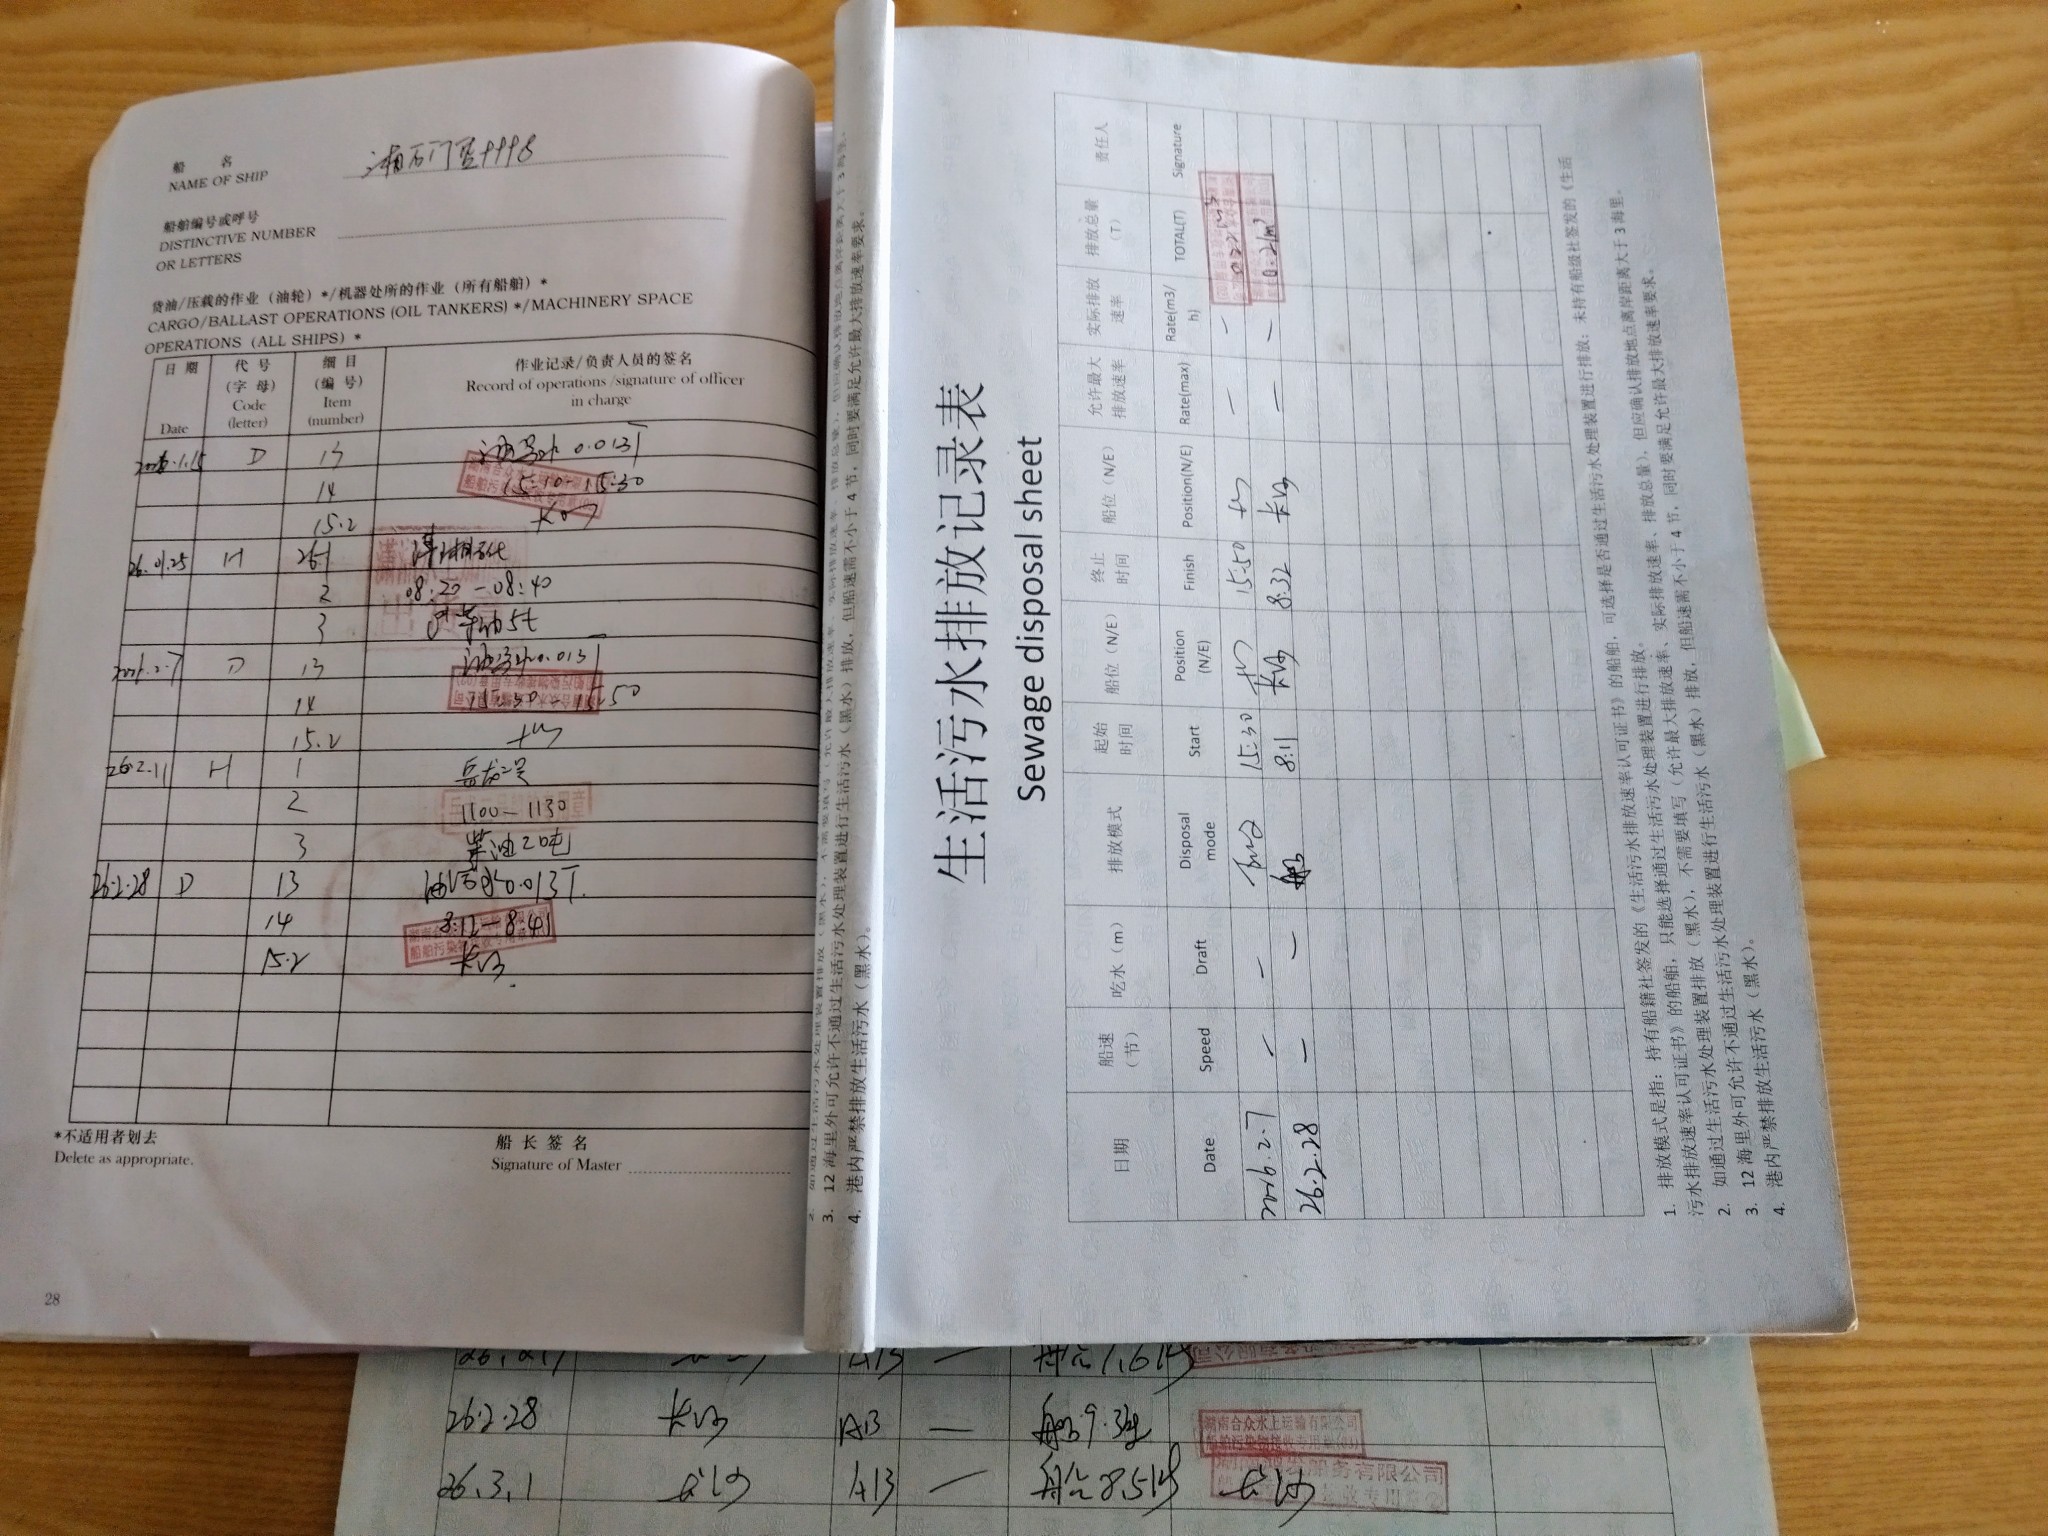 船 名
NAME OF SHIP
湘石门
船舶编号或呼号
DISTINCTIVE NUMBER
OR LETTERS
货油/压载的作业（油轮）*/机器处所的作业（所有船舶）*
CARGO/BALLAST OPERATIONS (OIL TANKERS) */MACHINERY SPACE
OPERATIONS (ALL SHIPS) *
日期 代号 细目 作业记录/负责人员的签名
(字母) (编号) Record of operations /signature of officer
Date Code (letter) Item (number) in charge
D 13 油污水 0.013T
14 15:10-15:30
15.2 长沙
26.01.25 H 26.1
2 08:20-08:40
3 柴油5t
2026.2.7 D 13 油污水0.013T
14 15:50
15.2 长沙
26.2.11 H 1
2 1100-1130
3 柴油20吨
26.2.28 D 13 油污水0.013T.
14 8:12-8:41
15.2 长沙
*不适用者划去
Delete as appropriate.
船长签名
Signature of Master
28
3. 12海里外可允许不通过生活污水处理装置进行生活污水（黑水）排放，但船速需不小于4节，同时要满足允许最大排放速率要求。
4. 港内严禁排放生活污水（黑水）。
生活污水排放记录表
Sewage disposal sheet
日期 船速（节） 吃水（m） 排放模式 起始时间 船位（N/E） 终止时间 船位（N/E） 允许最大排放速率 实际排放速率 排放总量（T） 责任人
Date Speed Draft Disposal mode Start Position (N/E) Finish Position(N/E) Rate(max) Rate(m3/h) TOTAL(T) Signature
2026.2.7 — — 15:30 长沙 15:50 长沙 — —
26.2.28 — — 船 8:11 长沙 8:32 长沙 — — 0.21m³
1. 排放模式是指：持有船籍社签发的《生活污水排放速率认可证书》的船舶，可选择是否通过生活污水处理装置进行排放；未持有船级社签发的《生活
污水排放速率认可证书》的船舶，只能选择通过生活污水处理装置进行排放。
2. 如通过生活污水处理装置排放（黑水），不需要填写（允许最大排放速率、实际排放速率、排放总量），但应确认排放地点离岸距离大于3海里。
3. 12海里外可允许不通过生活污水处理装置进行生活污水（黑水）排放，但船速需不小于4节，同时要满足允许最大排放速率要求。
4. 港内严禁排放生活污水（黑水）。
26.2.28 长沙 AB — 9.3kg
湖南合众水上运输有限公司
船舶污染物接收专用章(03)
26.3.1 长沙 AB — 8.5kg 长沙
服务有限公司